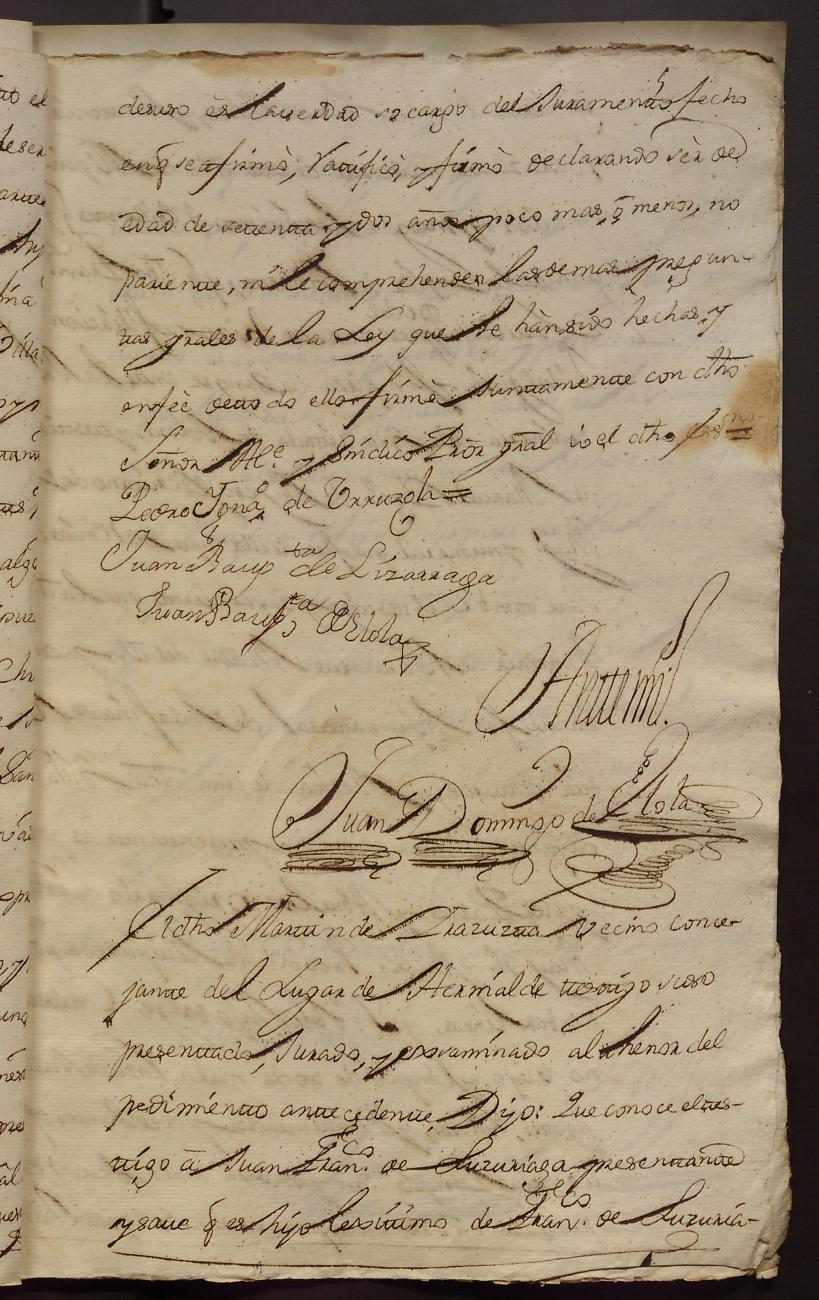 deuso es la verdad so cargo del Juramento fecho
enq̃ se afirmò, ratificò, y firmò declarando sèr de
edad de settenta y dos años poco mas, q̃ menos, no
pariente, ni le comprehenden las demas pregun-
tas grãles de la Ley que le hàn sido hechas, y
enfeè detodo ello firmè Juntamente con dho
Señor Alc.e y Sindico Prõr grãl io el dho ess.no
Pedro Ygna.o de Urruzola
Juan Baup.ta de Lizarraga
Juan Baup.ta de Elola
Antemi
Juan Domingo de Elola
El dho Martin de Irazuzta vecino conce-
jante del Lugar de Hernialde testigo suso
presentado, Jurado, y exsaminado al thenor del
pedimiento antecedente, Dijo: Que conoce eltes-
tigo à Juan Fran.co de Luzuriaga presentante
y saue q̃ es hijo lexitimo de Fran.co de Luzuria-